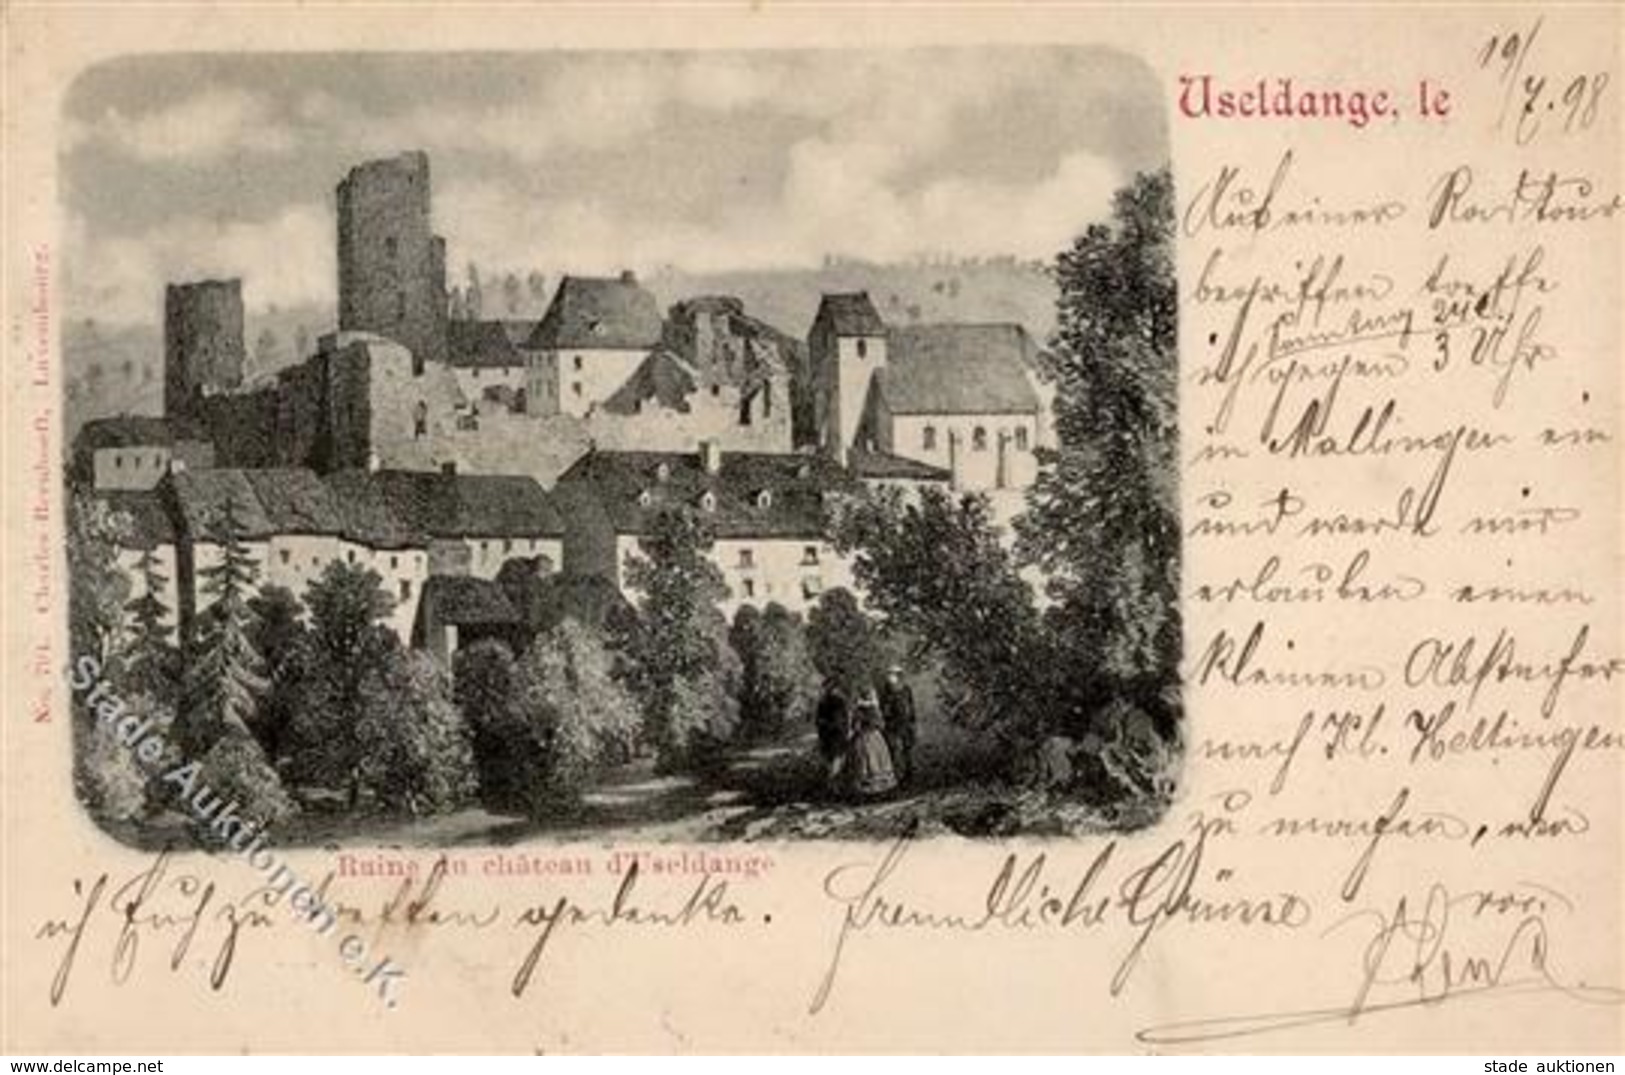 Useldange, le 19/7.98
Auf einer Radtour
begriffen treffe
Sonntag 24ct.
ich gegen 3 Uhr
in Mallingen ein
und werde mir
erlauben einen
kleinen Abstecher
nach Kl. Hettingen
zu machen, wo
ich Euch zu treffen gedenke. Freundliche Grüsse von
Ruine du château d'Useldange
No. 704. Charles Bernhoeft, Luxembourg.
Stade Auktionen e.K.
www.delcampe.net
stade auktionen